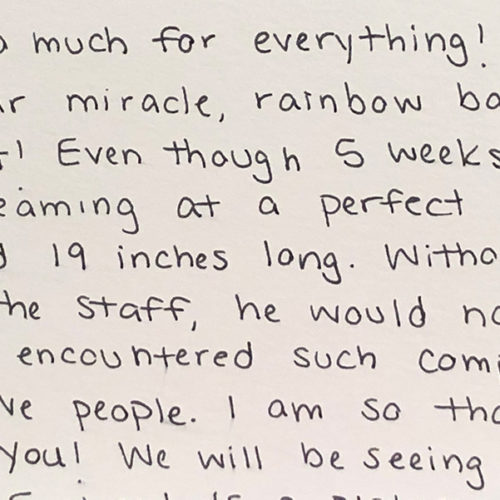 much for everything!
miracle, rainbow
Even though 5 weeks
at a perfect
19 inches long.
the staff, he would
encountered such
people. I am so
you! We will be seeing